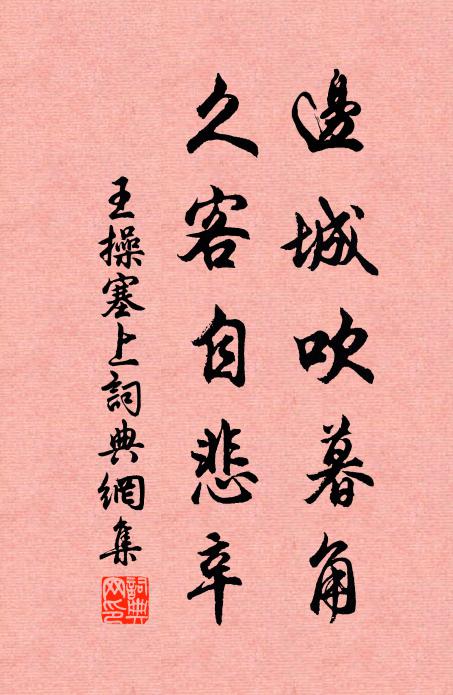 邊城吹暮角
久客自悲辛
王操塞上詞典網集
詞典網印